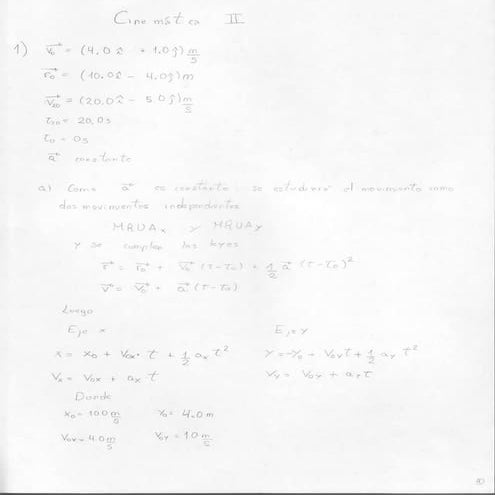 Cinemática II
1) v₀⃗ = (4.0 î + 1.0 ĵ) m/s
r₀⃗ = (10.0 î - 4.0 ĵ) m
v₂₀⃗ = (20.0 î - 5.0 ĵ) m/s
t₂₀ = 20.0s
t₀ = 0s
a⃗ constante
a) Como a⃗ es constante se estudiará el movimiento como
dos movimientos independientes
MRUAx y MRUAy
y se cumplen las leyes
r⃗ = r₀⃗ + v₀⃗ (t - t₀) + 1/2 a⃗ (t - t₀)²
v⃗ = v₀⃗ + a⃗ (t - t₀)
Luego
Eje x Eje y
x = x₀ + v₀x · t + 1/2 ax t² y = y₀ + v₀y t + 1/2 ay t²
vx = v₀x + ax t vy = v₀y + ay t
Donde
x₀ = 10.0 m/s y₀ = 4.0 m
v₀x = 4.0 m/s v₀y = 1.0 m/s